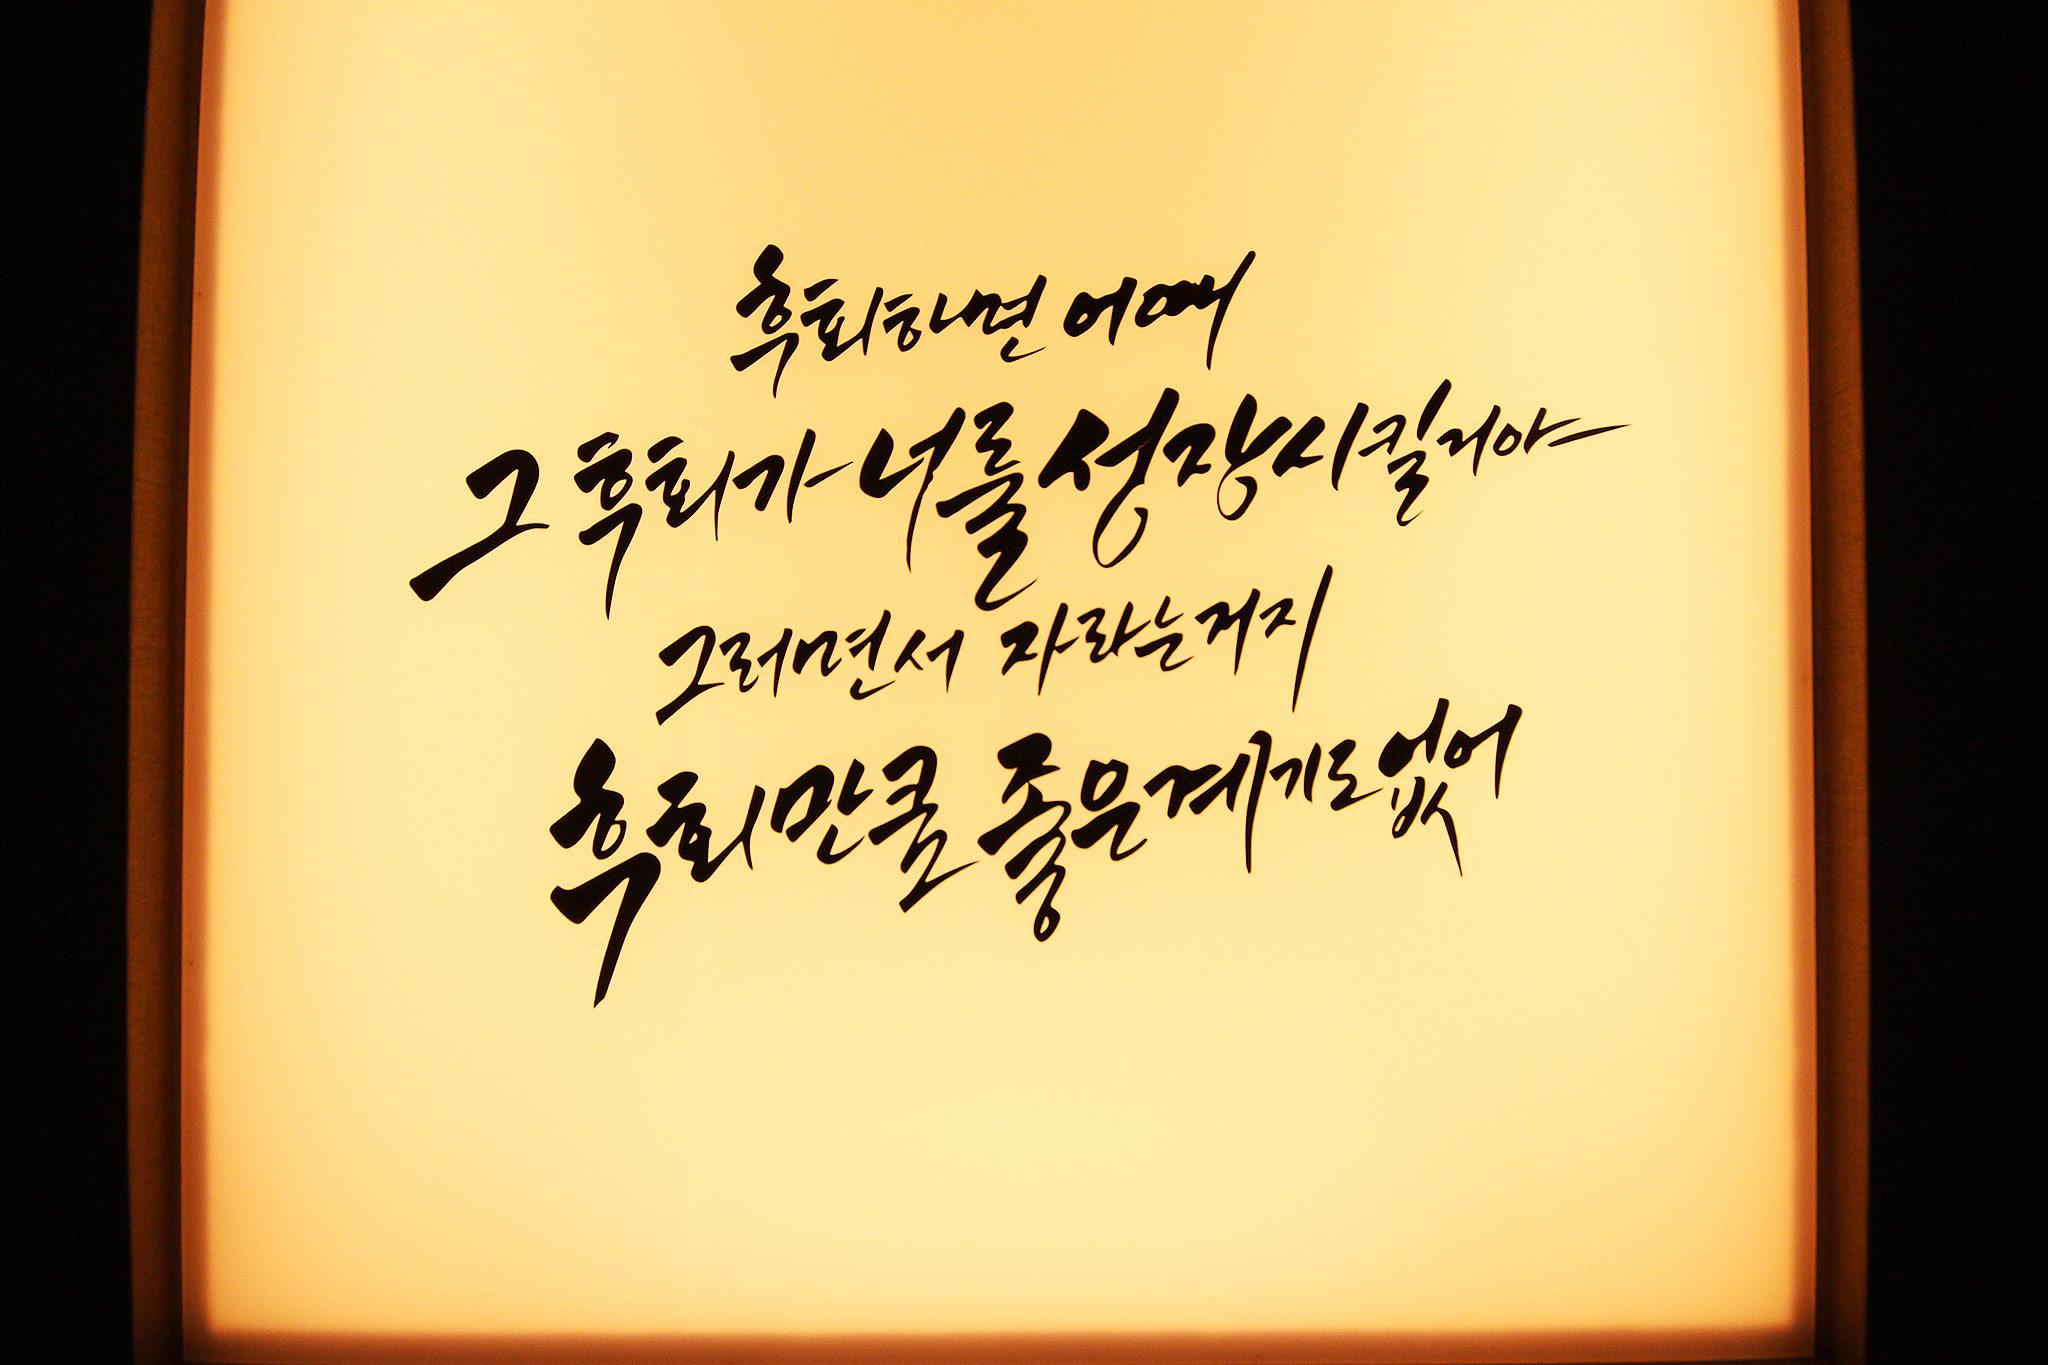 후회하면 어때
그 후회가 너를 성장시킬거야
그러면서 자라는거지
후회만큼 좋은계기도없어